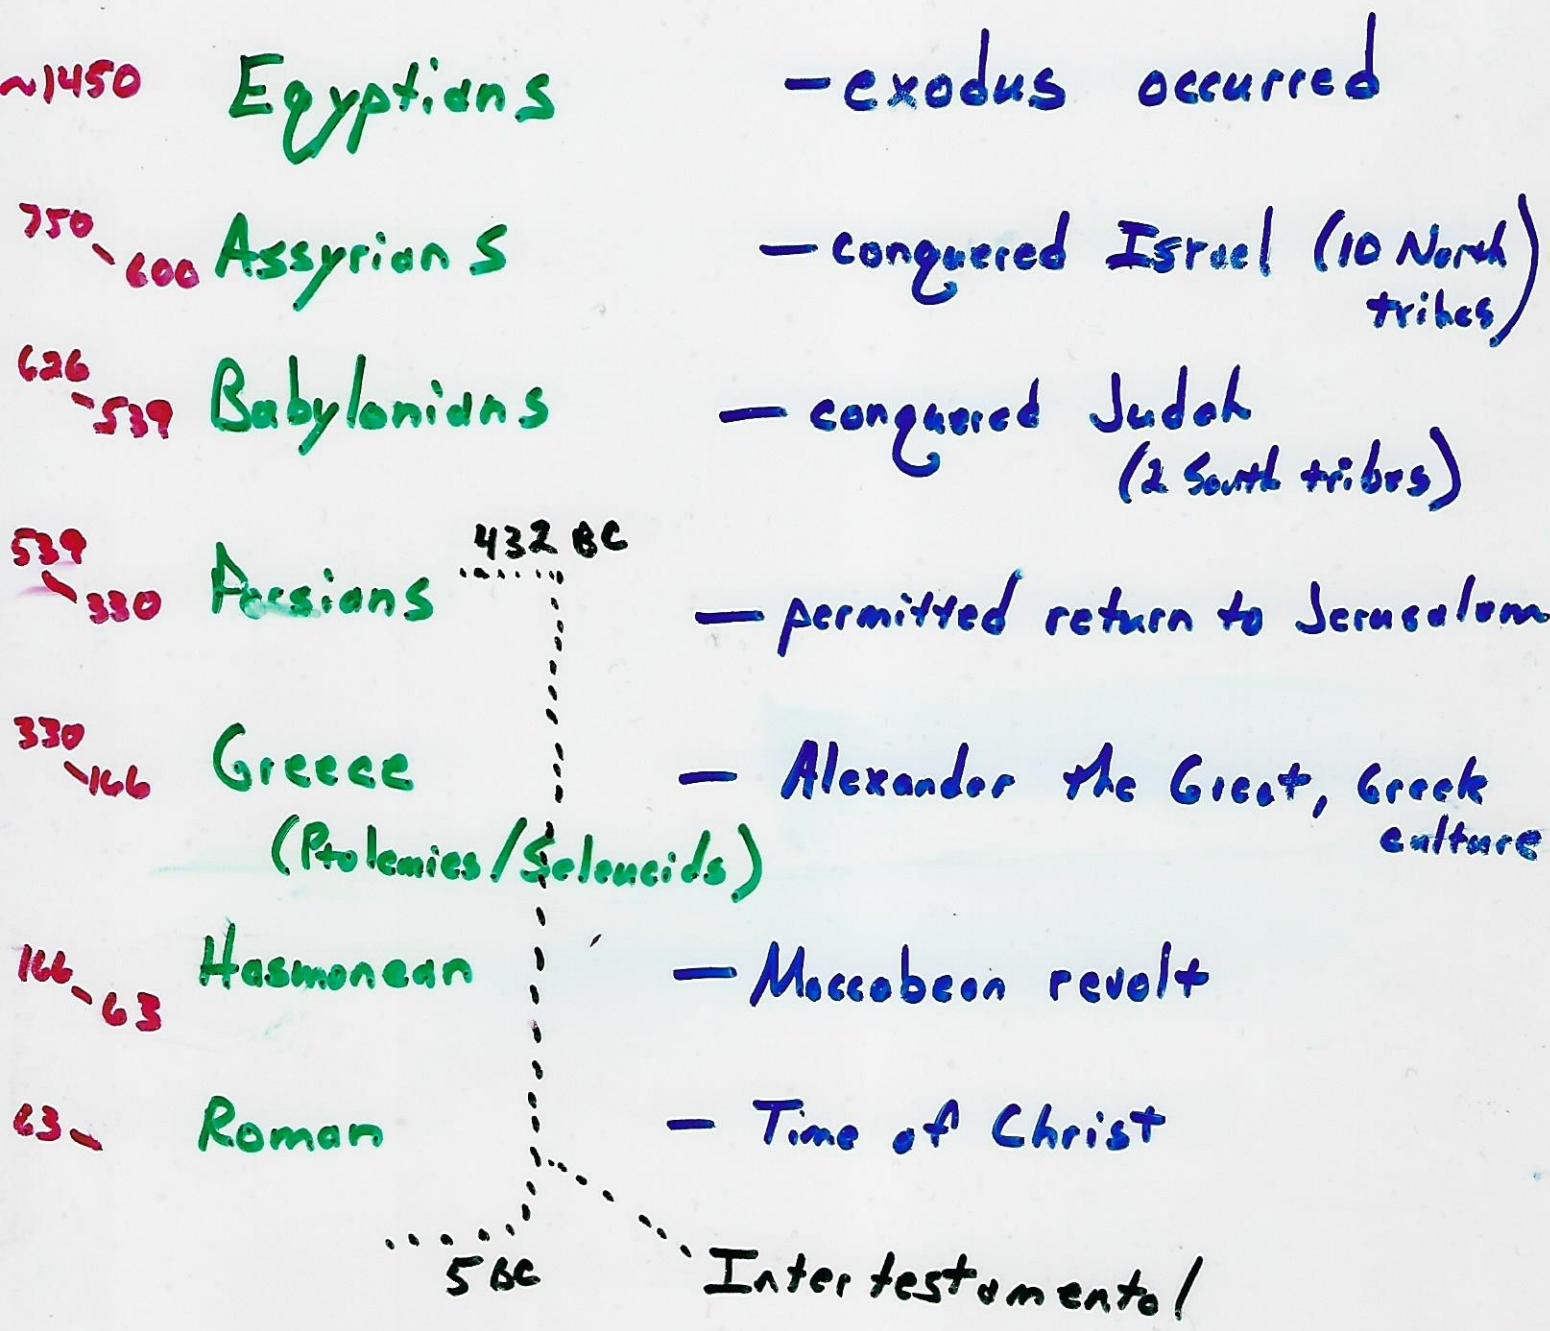 ~1450 Egyptians - exodus occurred
750 - 600 Assyrians - conquered Israel (10 North
tribes)
626 - 539 Babylonians - conquered Judah
(2 South tribes)
432 BC
539 - 330 Persians - permitted return to Jerusalem
330 - 166 Greece - Alexander the Great, Greek
culture
(Ptolemies/Seleucids)
166 - 63 Hasmonean - Maccabean revolt
63 - Roman - Time of Christ
5 BC
Intertestamental